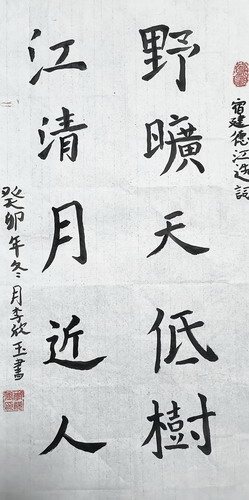 宿建德江选詞
野曠天低樹
江清月近人
癸卯年冬月李欣玉書